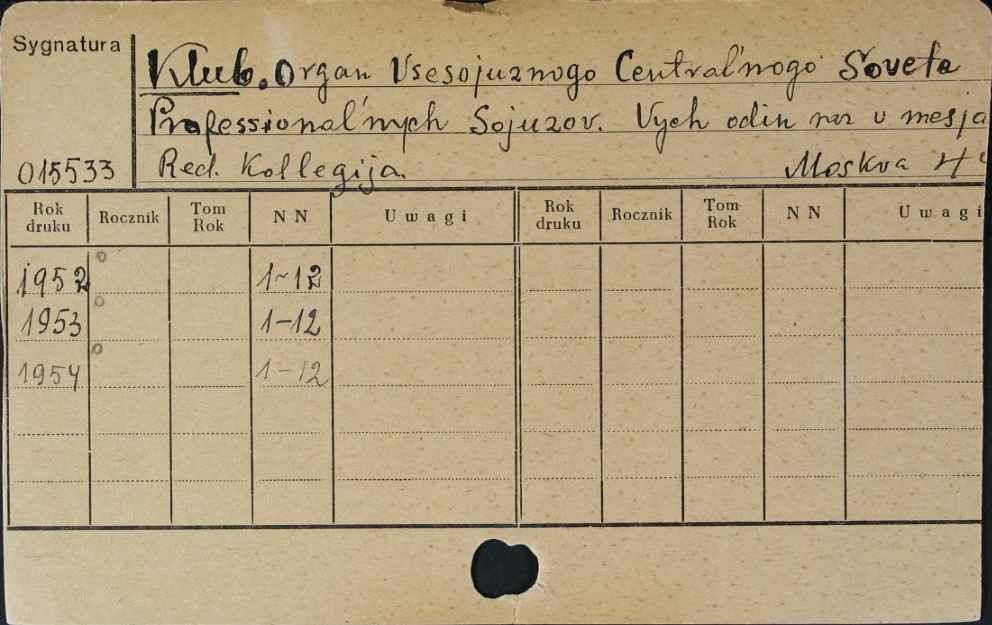 Sygnatura
Klub. Organ Vsesojuznogo Central'nogo Soveta
Professional'nych Sojuzov. Vych odin raz v mesja
015533 Red. Kollegija. Moskva 4°
Rok druku Rocznik Tom Rok NN Uwagi Rok druku Rocznik Tom Rok NN Uwagi
1952 1-12
1953 1-12
1954 1-12